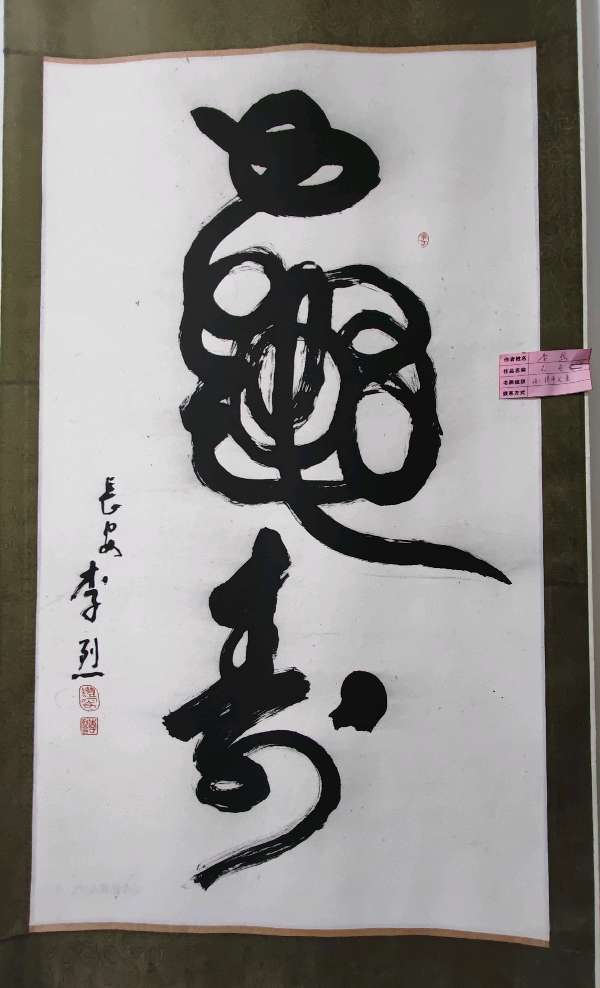 龜壽
長安李烈
作者姓名 李烈
作品名称
名师班级
联系方式